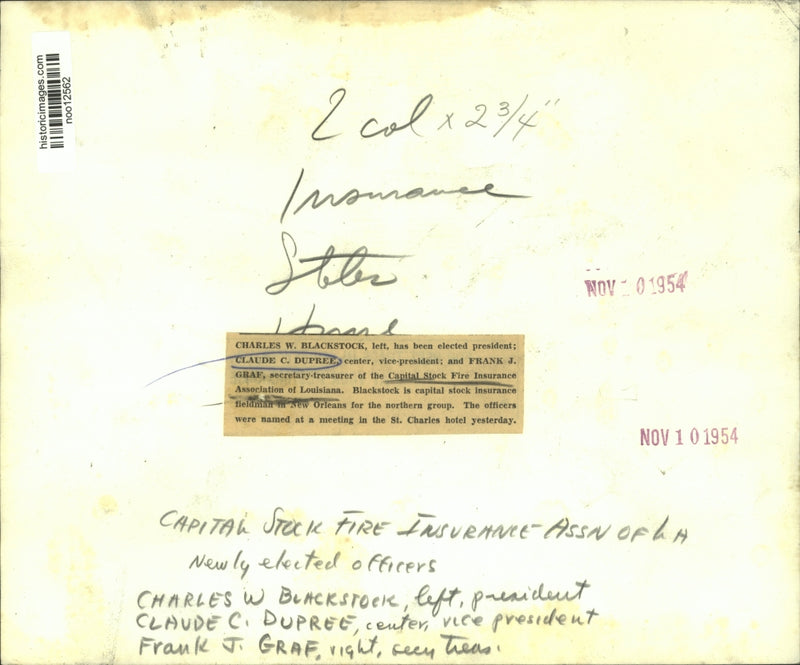 historicimages.com
noo12562
2 col x 2 3/4"
Insurance
States
NOV 1 0 1954
CHARLES W. BLACKSTOCK, left, has been elected president;
CLAUDE C. DUPREE, center, vice-president; and FRANK J.
GRAF, secretary-treasurer of the Capital Stock Fire Insurance
Association of Louisiana. Blackstock is capital stock insurance
fieldman in New Orleans for the northern group. The officers
were named at a meeting in the St. Charles hotel yesterday.
NOV 1 0 1954
CAPITAL STOCK FIRE INSURANCE ASSN OF LA
Newly elected officers
CHARLES W BLACKSTOCK, left, president
CLAUDE C. DUPREE, center, vice president
Frank J. GRAF, right, secy treas.